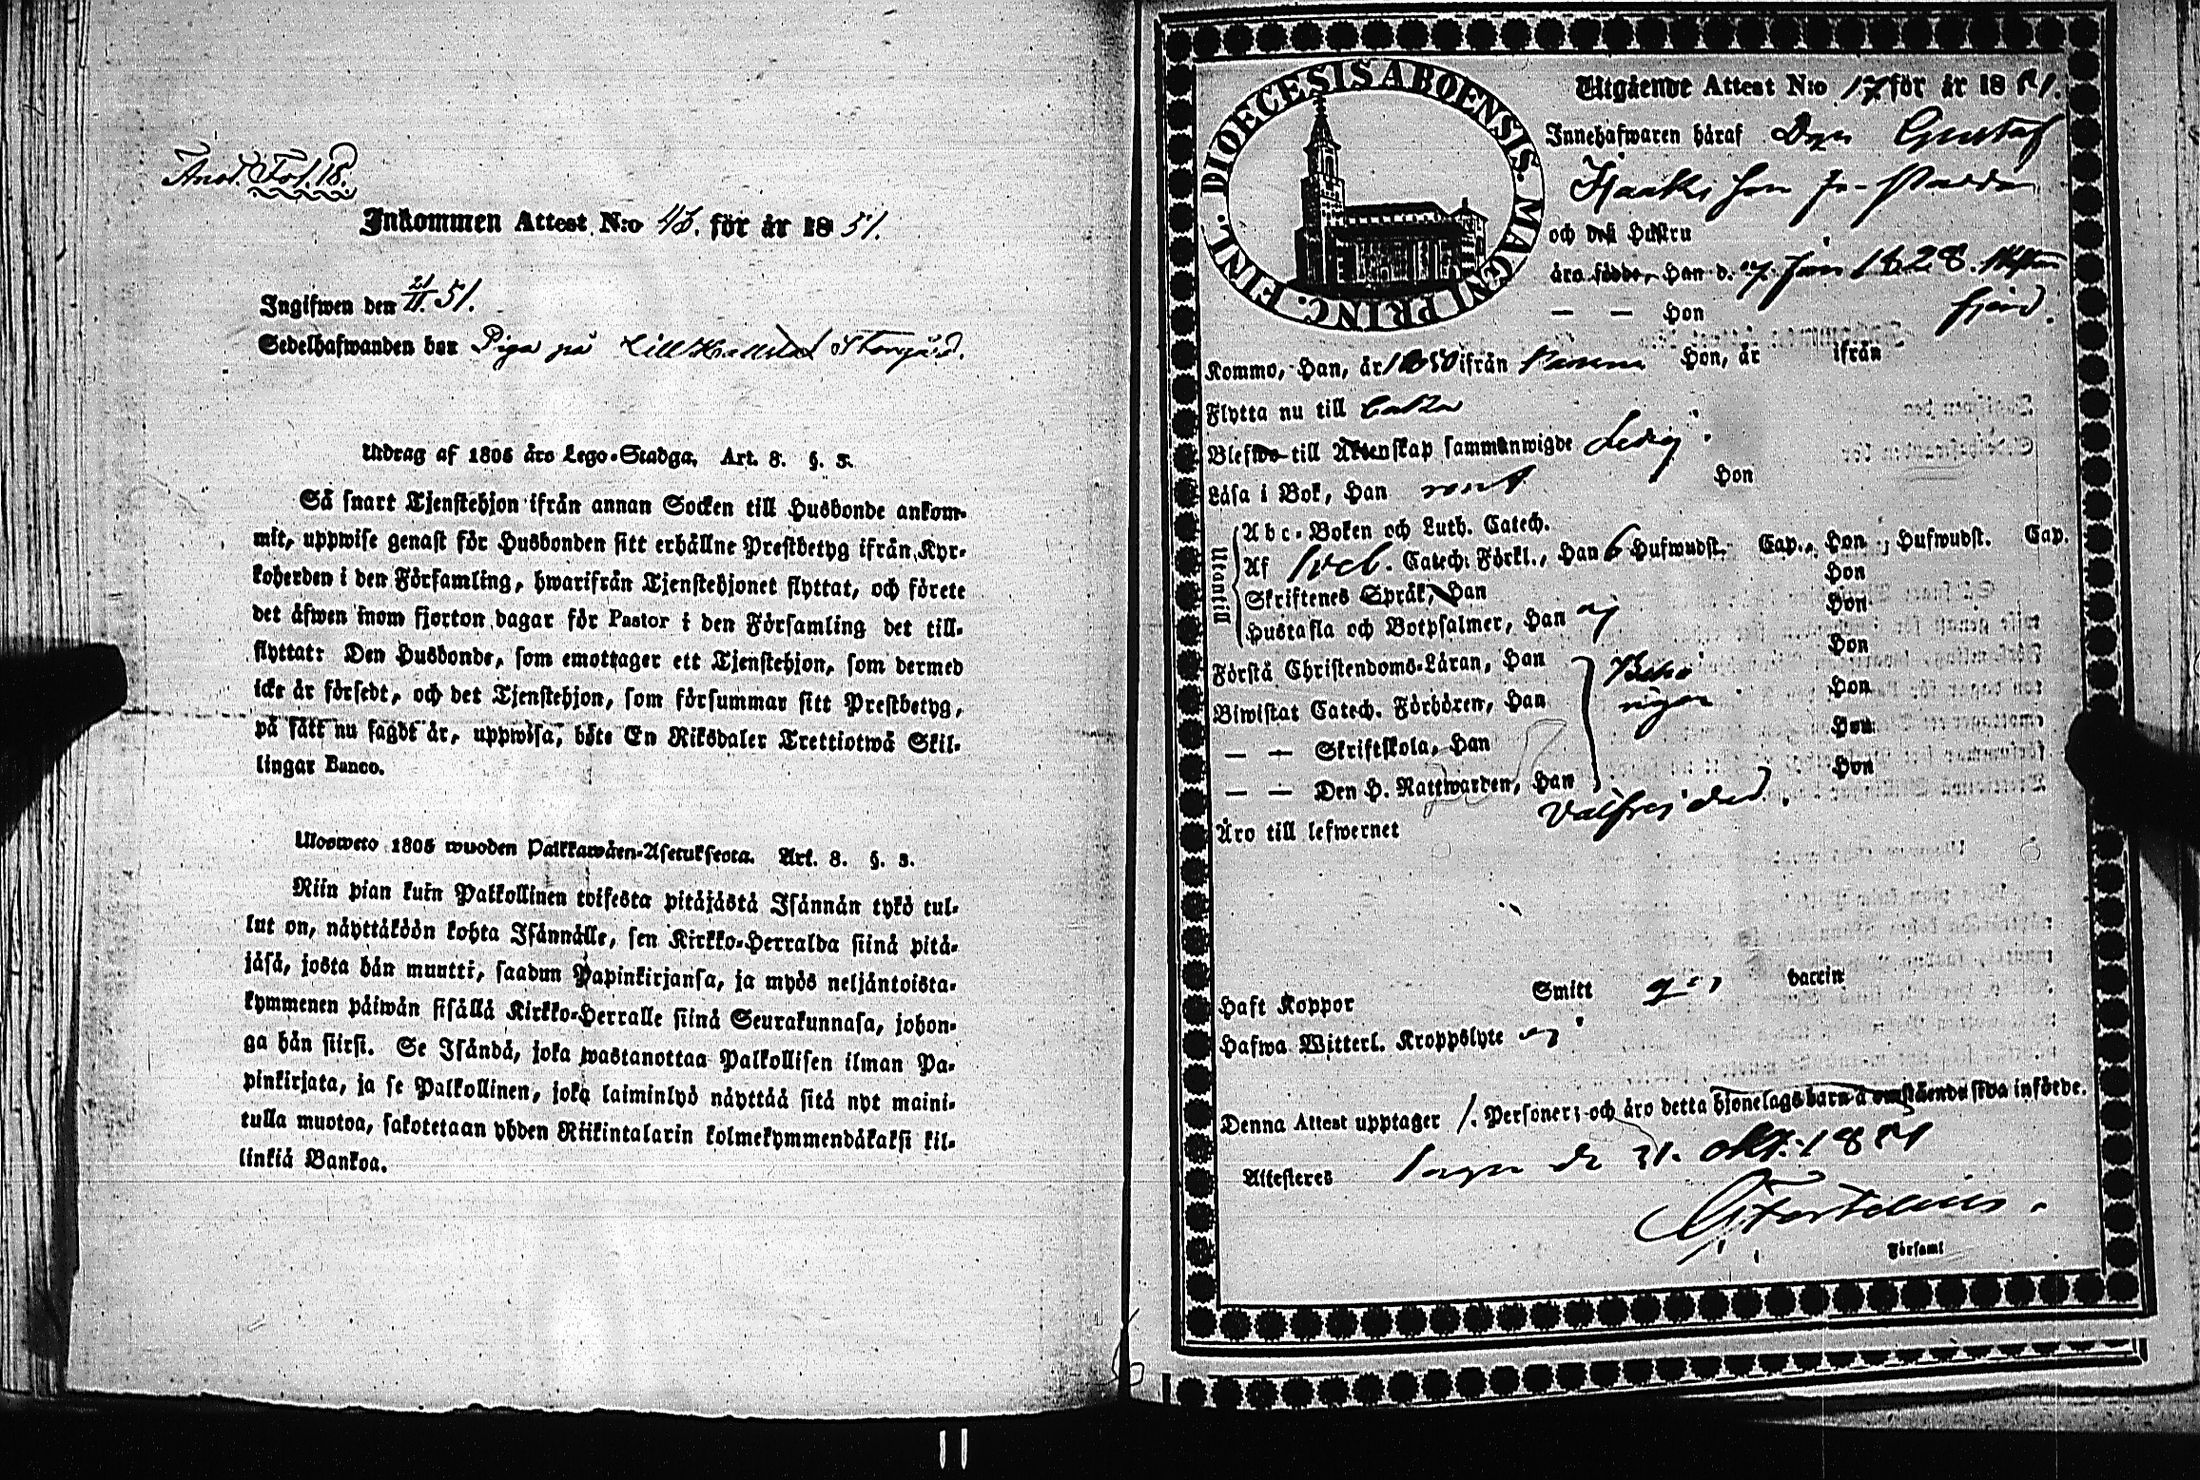 Anot. Fol. 18.
Inkommen Attest N:o 43. för år 1851.
Ingifwen den 21/11 51.
Sedelhafwanden bor Piga på Storgård.
Utdrag af 1805 års Lego-Stadga, Art. 8. §. 3.
Så snart Tjenstehjon ifrån annan Socken till Husbonde ankom-
mit, uppwise genast för Husbonden sitt erhållne Prestbetyg ifrån Kyr-
koherden i den Församling, hwarifrån Tjenstehjonet flyttat, och förete
det äfwen inom fjorton dagar för Pastor i den Församling det till-
flyttat: Den Husbonde, som emottager ett Tjenstehjon, som dermed
icke är försedt, och det Tjenstehjon, som försummar sitt Prestbetyg,
på sätt nu sagdt är, uppwisa, böte En Riksdaler Trettiotwå Skil-
lingar Banco.
Ulosweto 1805 wuoden Palkkawäen-Asetuksesta. Art. 8. §. 3.
Niin pian kuin Palkollinen toisesta pitäjästä Isännän tykö tul-
lut on, näyttäköön kohta Isännälle, sen Kirkko-Herralda siinä pitä-
jäsä, josta hän muutti, saadun Papinkirjansa, ja myös neljäntoista-
kymmenen päiwän sisällä Kirkko-Herralle siinä Seurakunnasa, johon-
ga hän siirsi. Se Isändä, joka wastanottaa Palkollisen ilman Pa-
pinkirjata, ja se Palkollinen, joka laiminlyö näyttää sitä nyt maini-
tulla muotoa, sakotetaan yhden Riikintalarin kolmekymmendäkaksi kil-
linkiä Bankoa.
DIOECESIS ABOENSIS. MAGNI PRINC. FINL.
Utgående Attest N:o 17 för år 1851.
Innehafwaren häraf Dgn Gustaf
Isaaks son fr.
och dess Hustru
äro födde, Han d. 7 Jun 1828.
— — Hon fjerd.
Kommo, Han, år 1850 ifrån Hon, år ifrån
Flytta nu till
Blefwo till Äktenskap sammanwigde Ledig.
Läsa i Bok, Han Hon
Utantill
Abc-Boken och Luth. Catech.
Af Catech: Förkl., Han 6 Hufwudst. Cap., Hon , Hufwudst. Cap.
Skriftenes Språk, Han Hon
Hustafla och Botpsalmer, Han ej Hon
Förstå Christendoms-Läran, Han Hon
Biwistat Catech. Förhören, Han Hon
— — Skriftskola, Han Hon
— — Den H. Nattwarden, Han Hon
Äro till lefwernet välfrejdad.
Haft Koppor Smitt vaccin
Hafwa Witterl. Kroppslyte ej
Denna Attest upptager 1. Personer; och äro detta hjonelags barn å omstående sida införde.
Attesteres d. 31. Okt. 1851
Församl